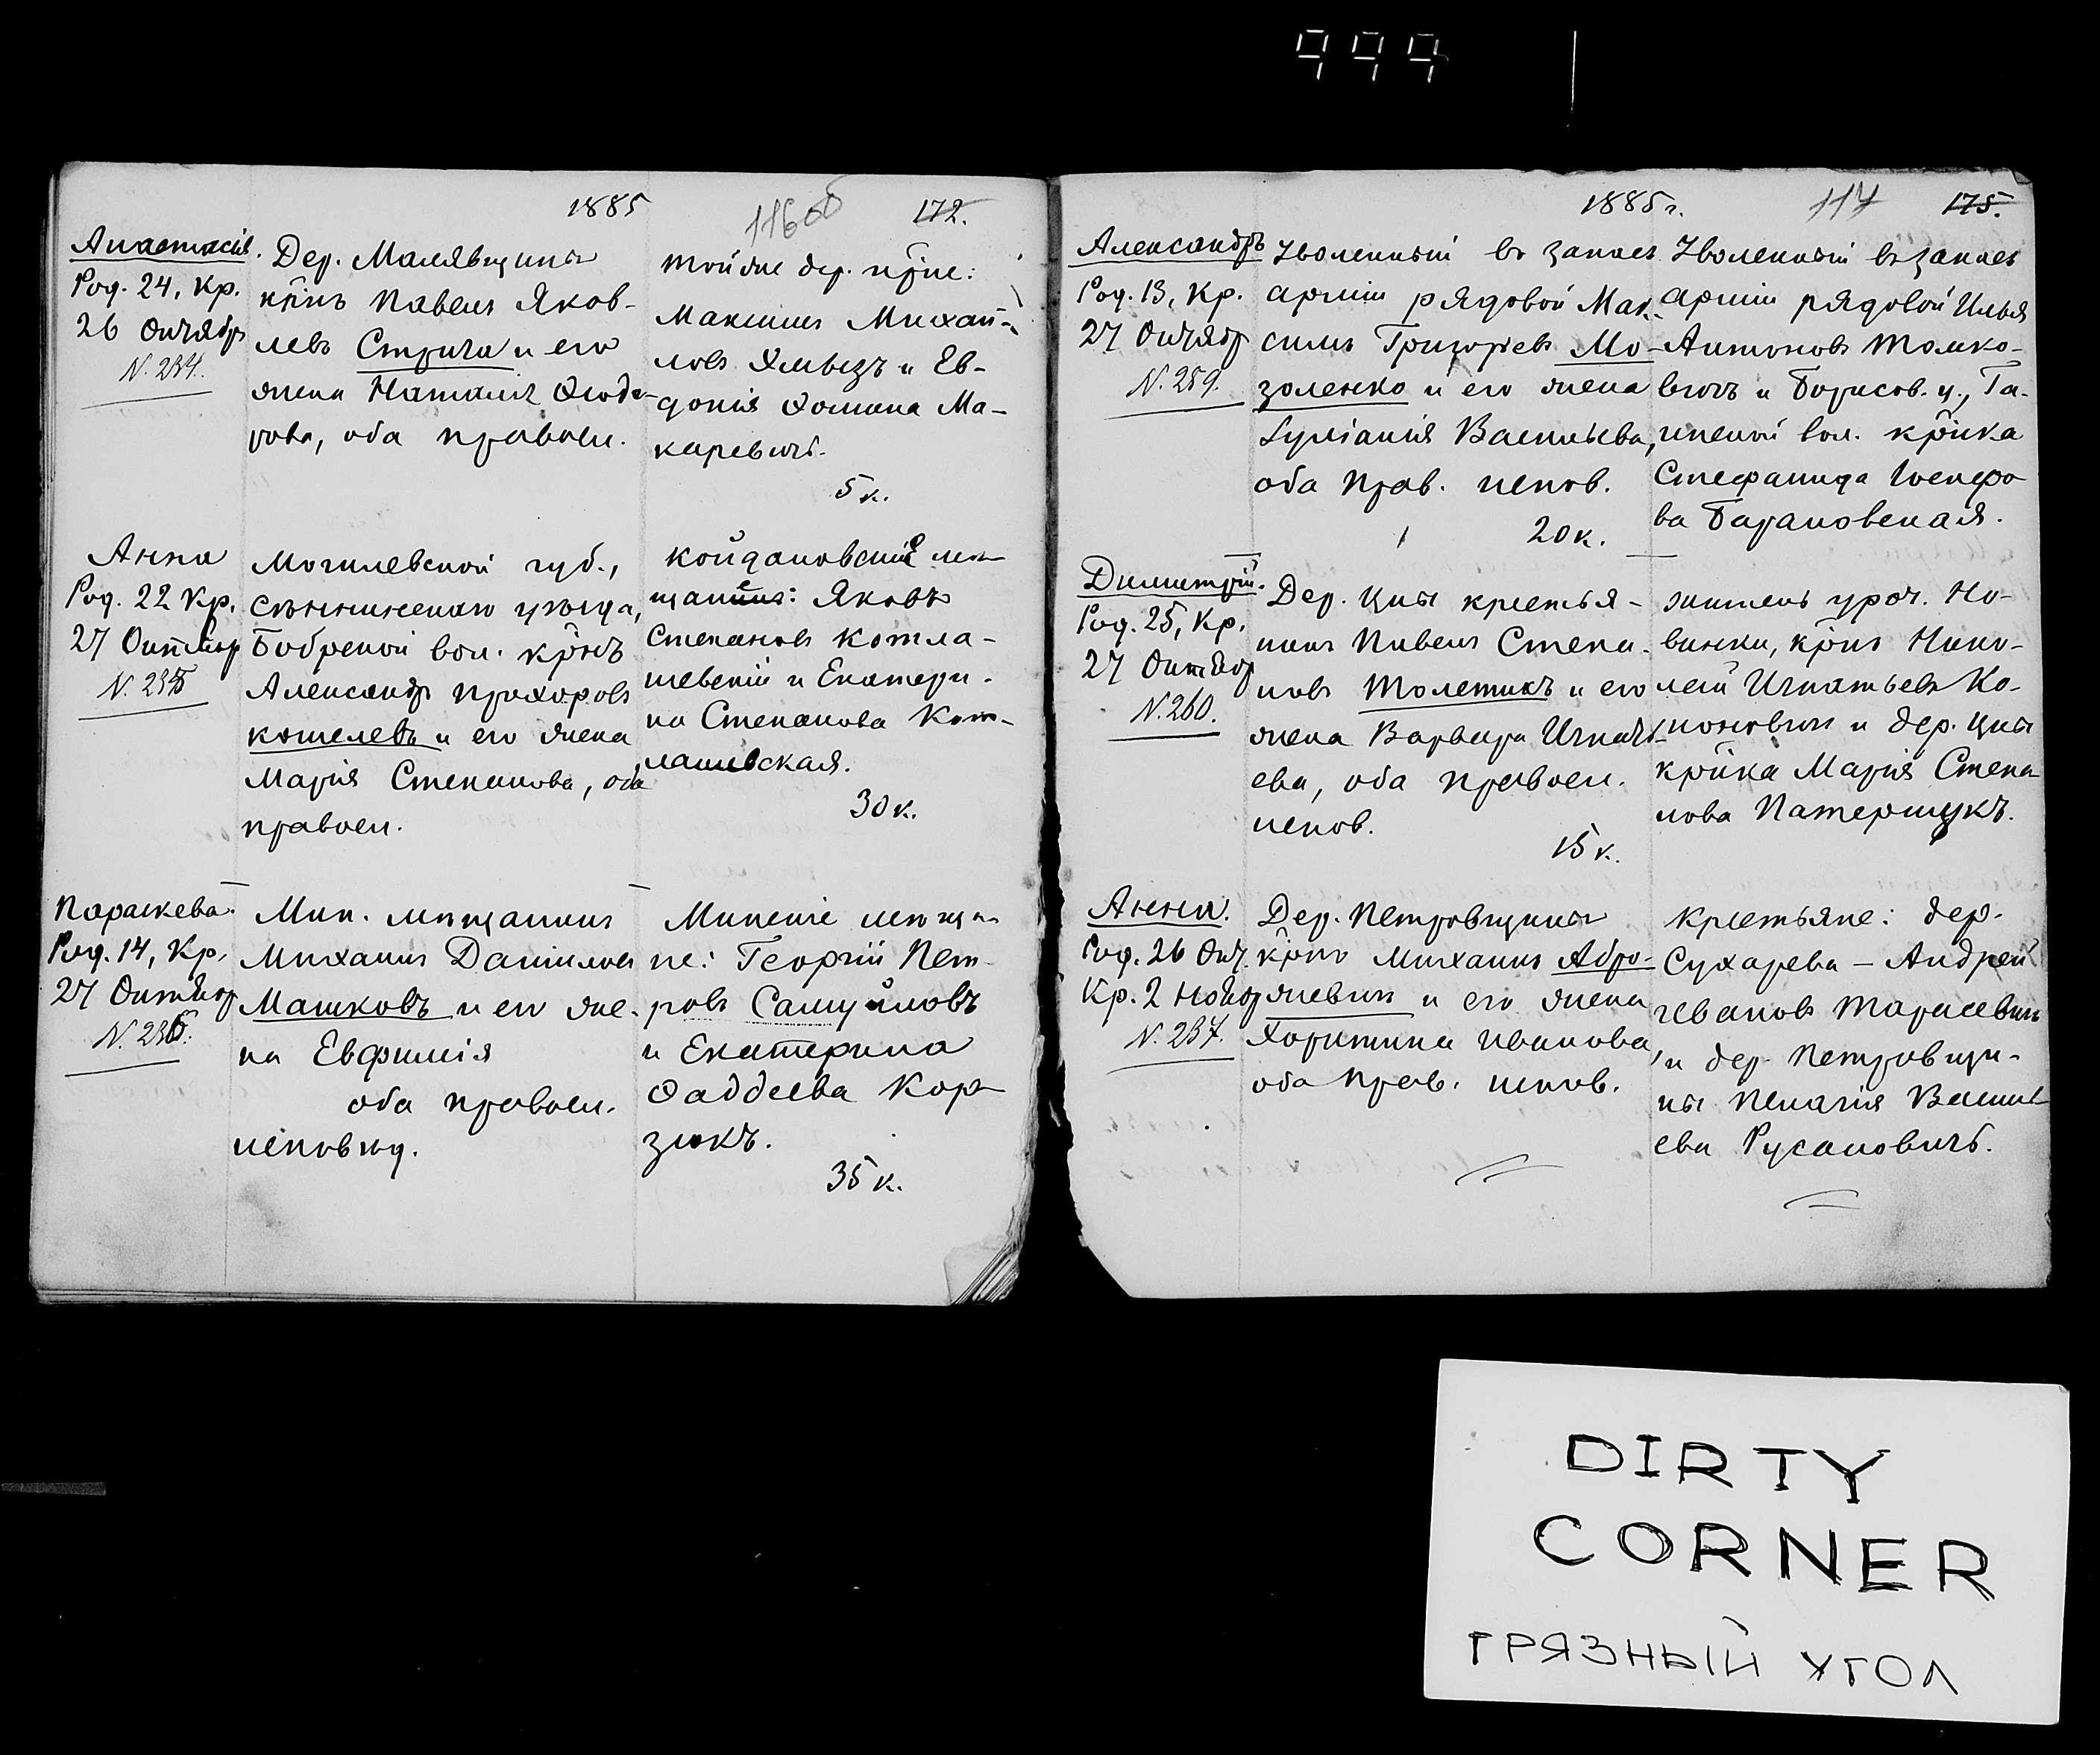 1885
116об
172.
Анастасія.
Род. 24, Кр.
26 Октябр
N. 254.
Дер. Малявщины
крінъ Павелъ Яков-
левъ Стрига и его
жена Наталія Ѳеодо-
рова, оба правосл.
той же дер. крне:
Максимъ Михай-
ловъ Хмызъ и Ев-
докія Ѳомина Ма-
каревичъ.
5 к.
Анна
Род. 22 Кр.
27 Октябр
N. 255
Могилевской губ.,
Сѣннинскаго уѣзда,
Бобрской вол. крнъ
Александръ Прохоровъ
Кошелевъ и его жена
Марія Степанова, оба
правосл.
Койдановскіе мѣ-
щане: Яковъ
Степановъ Котла-
шевскій и Екатери-
на Степанова Кот-
лашевская.
30 к.
Параскева.
Род. 14, Кр.
27 Октябр
N. 256.
Мин. мѣщанинъ
Михаилъ Даніиловъ
Машковъ и его же-
на Евфимія
оба правосл.
исповѣд.
Минскіе мѣща-
не: Георгій Пет-
ровъ Самуйловъ
и Екатерина
Ѳаддеева Кор-
зюкъ.
35 к.
1885 г.
117
175.
Александръ
Род. 13, Кр.
27 Октябр
N. 259.
Уволенный въ запасъ
арміи рядовой Мак-
симъ Григорьевъ Мо-
золенко и его жена
Іуліанія Васильева,
оба прав. испов.
20 к.
Уволенный въ запасъ
арміи рядовой Илья
Антоновъ Толко-
вичъ и Борисов. у., Га-
инской вол. крнка
Стефанида Іосифо
ва Барановская.
Димитрій.
Род. 25, Кр.
27 Октябр
N. 260.
Дер. Цны крестья-
нинъ Павелъ Степа-
новъ Толстикъ и его
жена Варвара Игнать-
ева, оба правосл.
испов.
15 к.
житель уроч. Но-
винки, крнъ Нико-
лай Игнатьевъ Ко-
ноновичъ и дер. Цны
крнка Марія Степа-
нова Патершукъ.
Анна.
Род. 26 Окт.
Кр. 2 Ноябр
N. 257.
Дер. Петровщины
крнъ Михаилъ Абра-
жевичъ и его жена
Харитина Иванова,
оба прав. испов.
Крестьяне: дер.
Сухарева – Андрей
Ивановъ Тарасевичъ
и дер. Петровщи-
ны Пелагія Василь-
ева Русановичъ.
DIRTY
CORNER
ГРЯЗНЫЙ УГОЛ